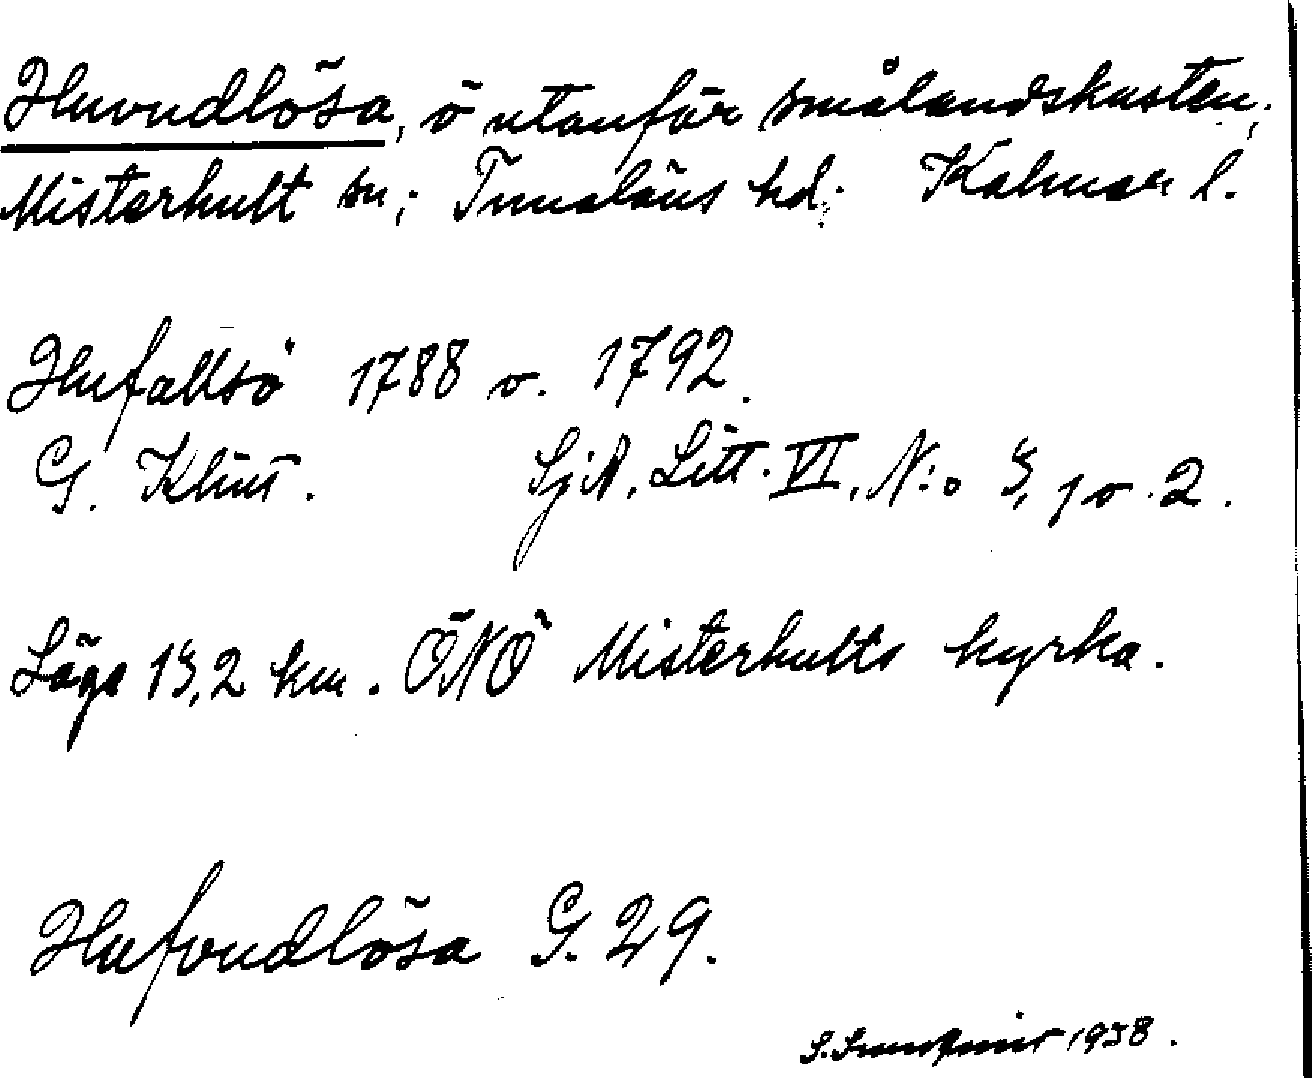 Huvudlösa, ö utanför smålandskusten,
Misterhult sn; Tunaläns hd; Kalmar l.
Hufallsö 1788 o. 1792.
G. Klint. SjA, Litt. VI, N:o 5, 1 o. 2.
Läge 15,2 km. ÖNÖ Misterhults kyrka.
Hufvudlösa G. 29.
S. 1938.